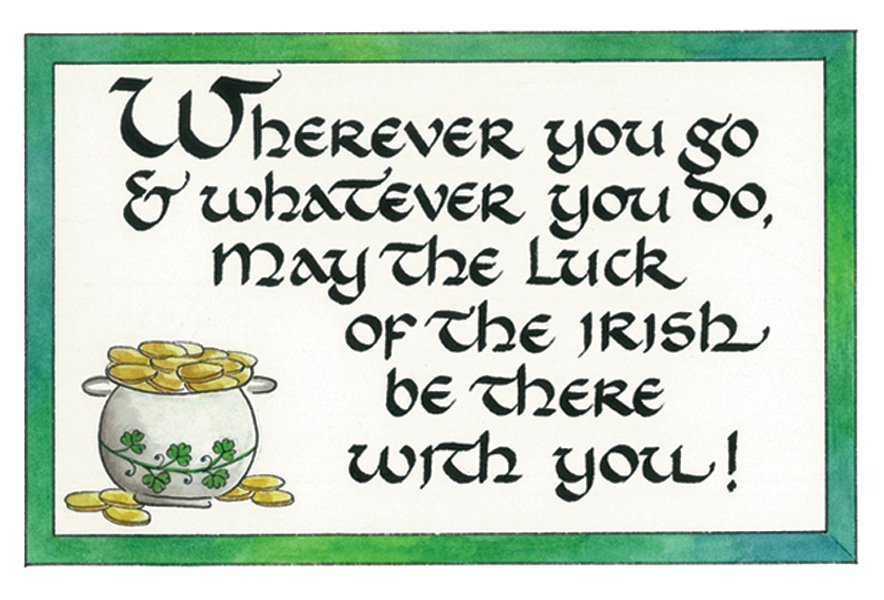 Wherever you go
& whatever you do,
May the Luck
of the Irish
be there
with you!